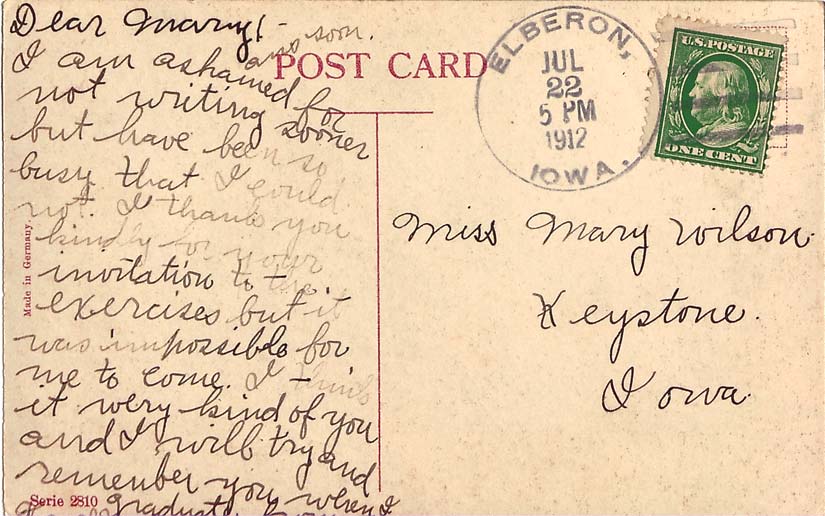 Dear Mary!-
ans soon.
I am ashamed
POST CARD
not writing for
sooner
but have been so
busy that I could
not. I thank you
kindly for your
invitation to the
exercises but it
was impossible for
me to come. I think
it very kind of you
and I will try and
remember you when I
graduate
Made in Germany.
Serie 2810
ELBERON,
JUL
22
5 PM
1912
IOWA.
U.S. POSTAGE
ONE CENT
Miss Mary Wilson.
Keystone.
Iowa.